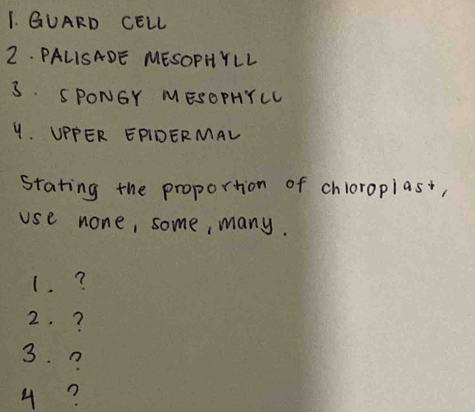 1. GUARD CELL
2. PALISADE MESOPHYLL
3. SPONGY MESOPHYLL
4. UPPER EPIDERMAL
Stating the proportion of chloroplast,
use none, some, many.
1. ?
2. ?
3. ?
4 ?